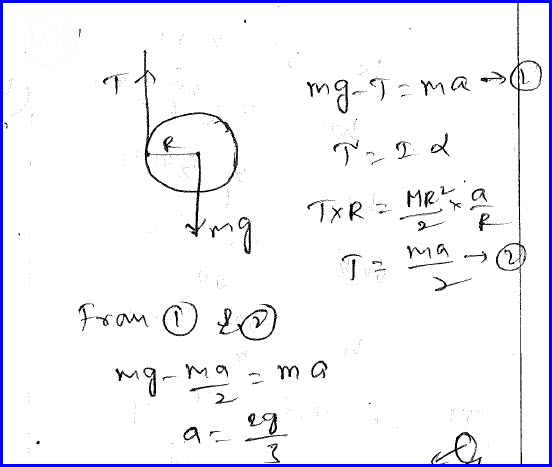 T
R
mg
mg - T = ma → ①
τ = I α
T x R = MR²/2 x a/R
T = ma/2 → ②
From ① & ②
mg - ma/2 = ma
a = 2g/3